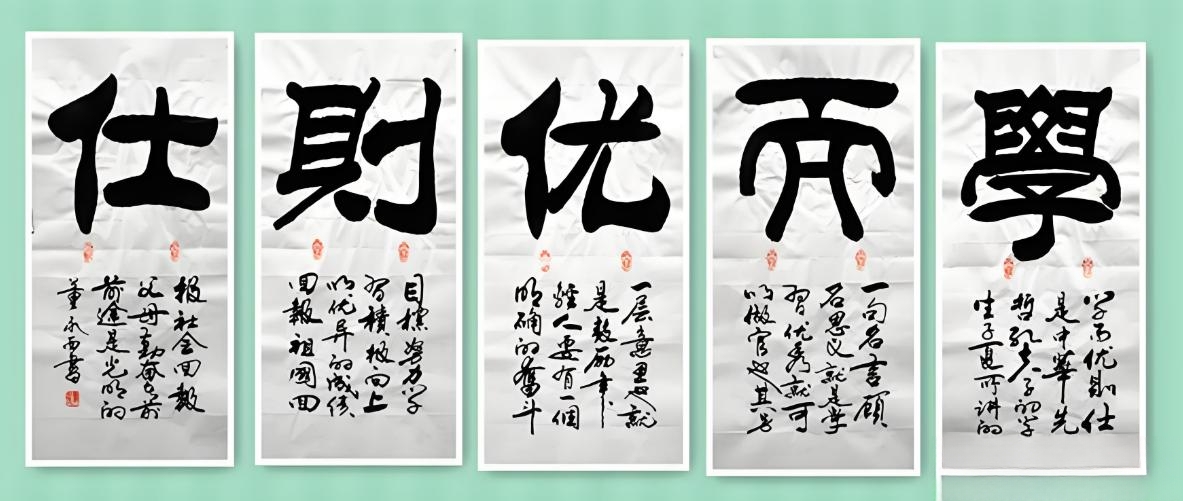 學
学而优則仕
是中華先
哲孔夫子的学
生子夏所讲的
而
一句名言顾
名思义就是学
習优秀就可
以做官也其另
优
一层意思就
是鼓励年
輕人要有一個
明确的奮斗
則
目標努力学
習積极向上
以优异的成绩
回報祖國回
仕
報社会回報
父母勤奮之前
前途是光明的
董永西書